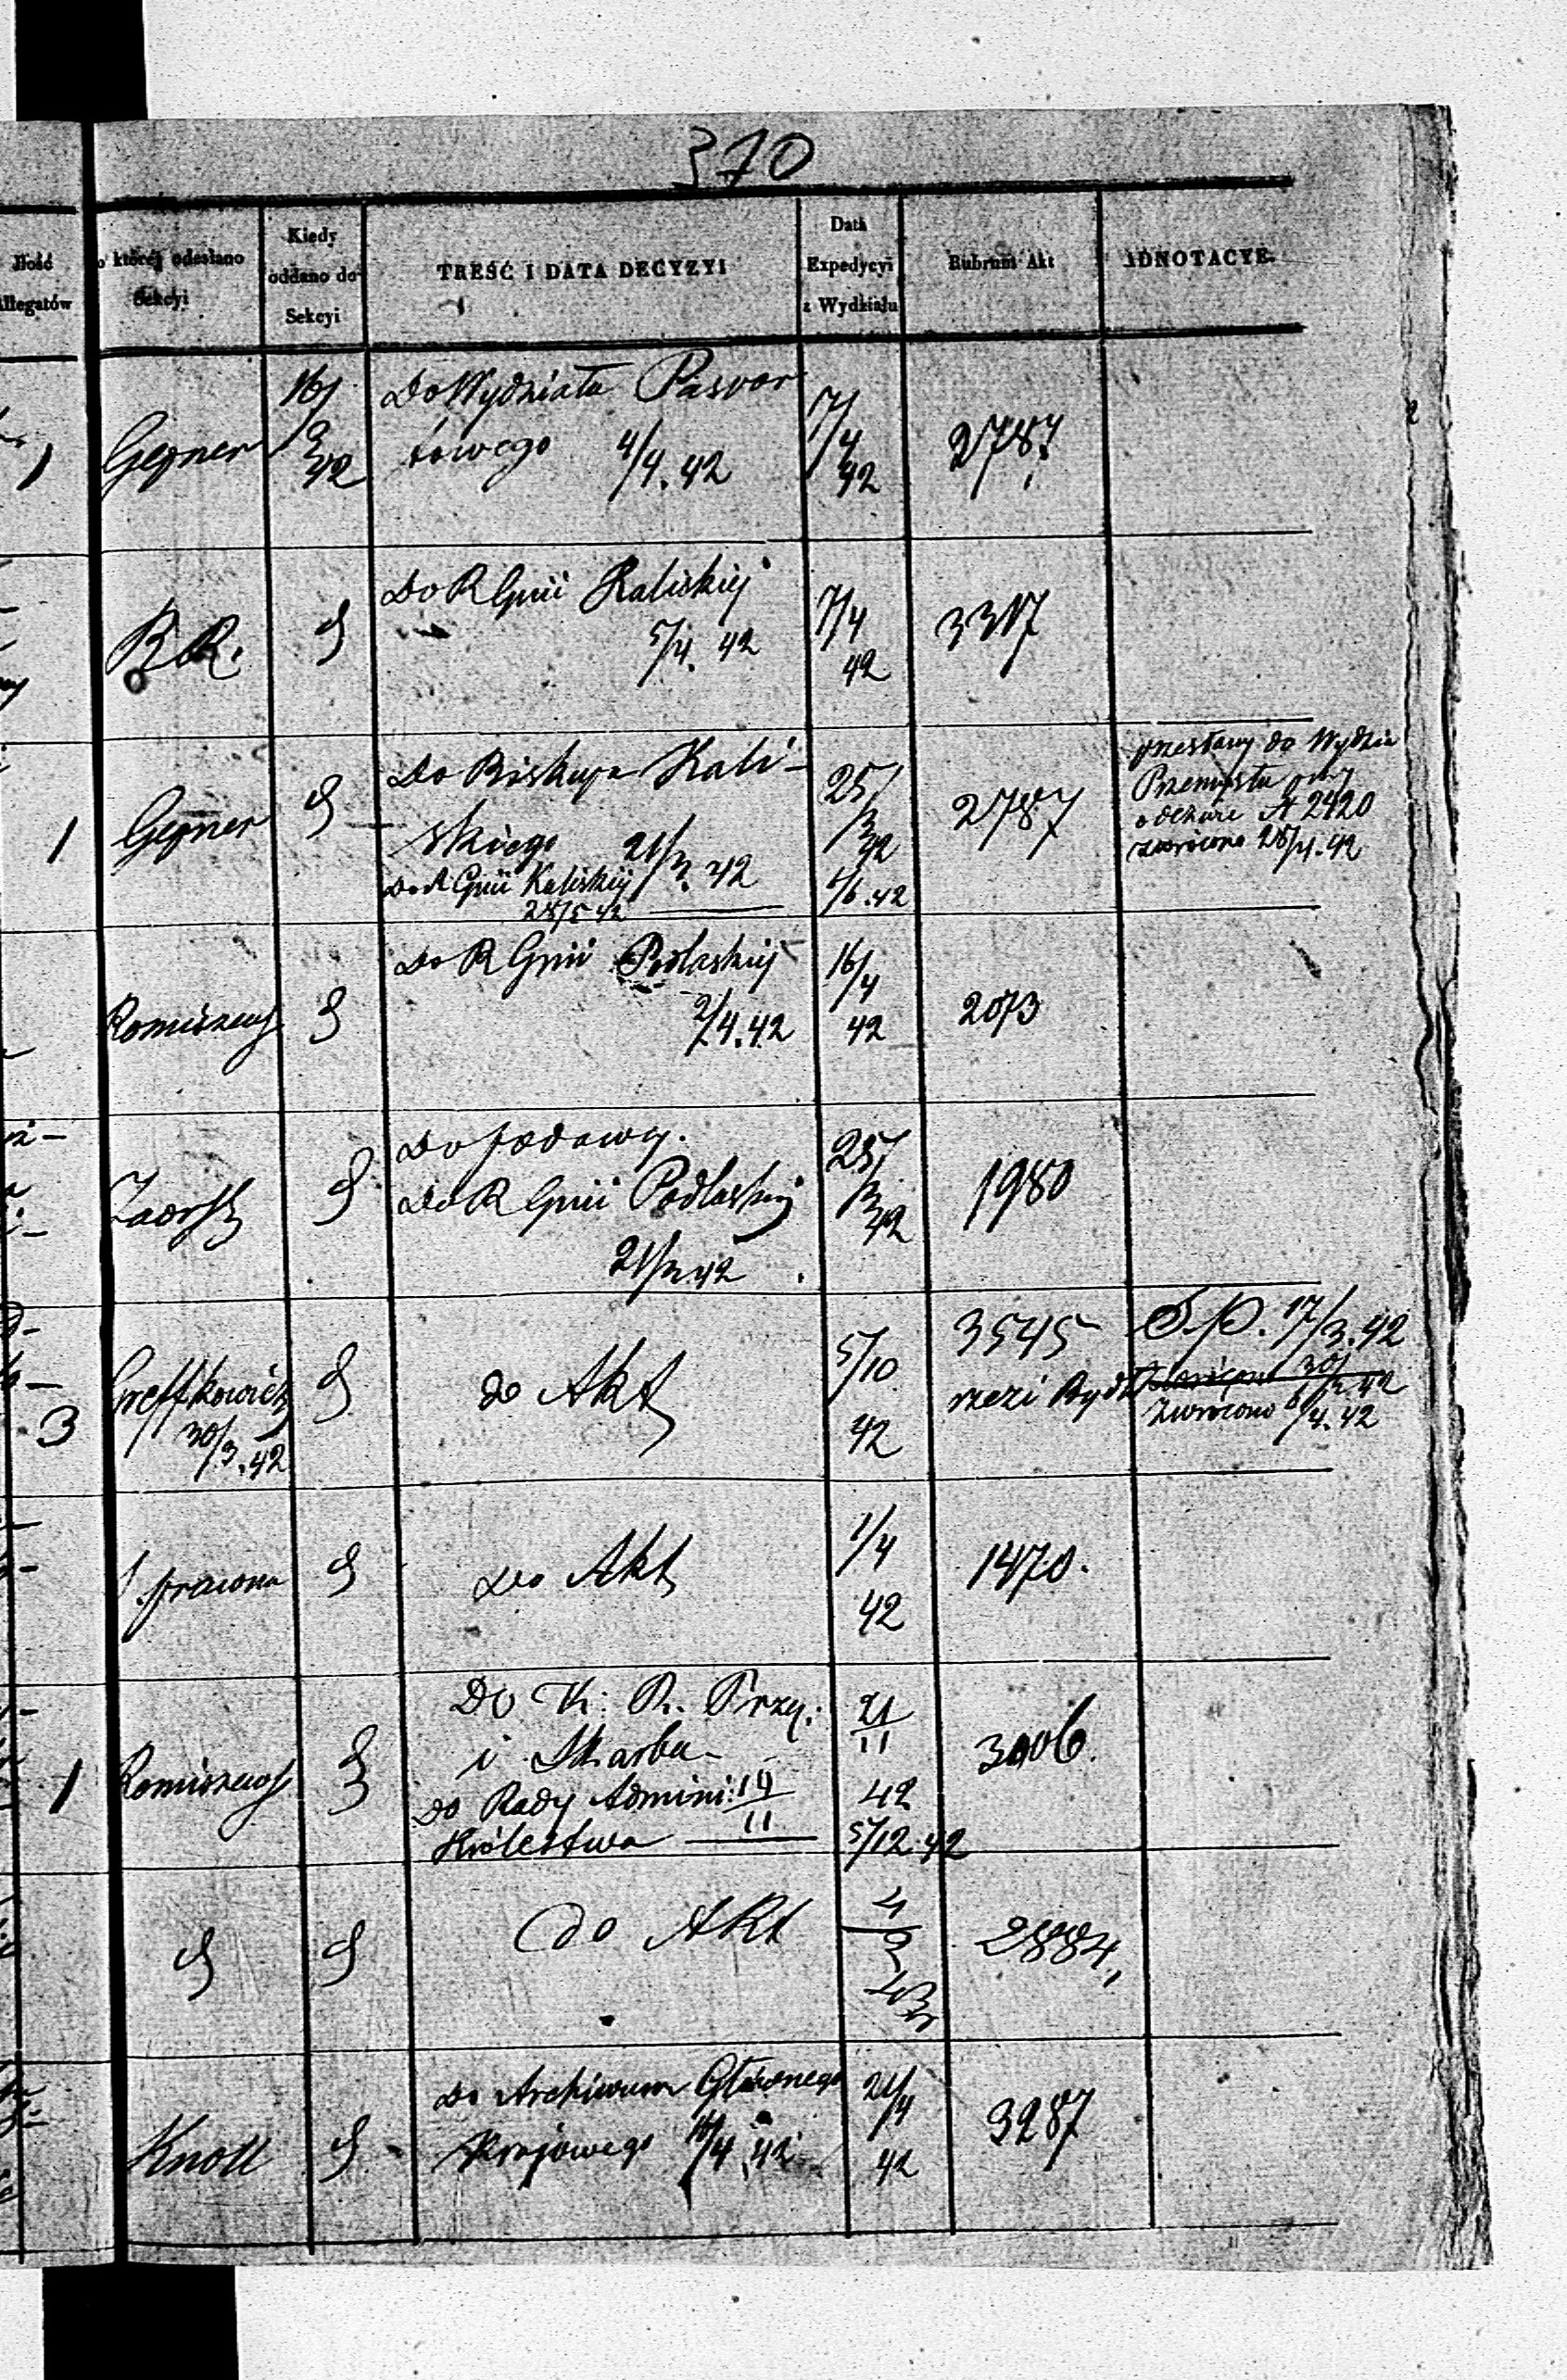 370
Ilość
Allegatów
któréj odesłano
Sekcyi
Kiedy
oddano do
Sekcyi
TREŚĆ I DATA DECYZYI
Data
Expedycyi
z Wydziału
Rubrum Akt
ADNOTACYE.
1
Gepner
16/3 42
Do Wydziału Paszpor
towego 4/4. 42
7/4 42
2787
Do R Gnii Kaliskiej
5/4. 42
7/4 42
3317
1
Gepner
Do Biskupa Kali-
skiego 21/3. 42
Do R Gnii Kaliskiej
28/5 42
25/3 42
1/6. 42
2787
przesłany do Wydzia
Przemysłu przy
odezwie N 2420
zwrócono 28/4. 42
Romiszews
Do R Gnii Podlaskiej
2/4. 42
16/4 42
2073
Do podawcy.
Do R Gnii Podlaskiej
21/3 42
25/3 42
1980
3
30/3. 42
do Akt
5/10 42
3545
rzezi Bydł
S.p. 17/3. 42
Zwrócono 30/3. 42
Zwrócono 6/4. 42
prawna
do Akt
1/4 42
1470.
1
Romiszews
Do K. R. Przy.
i Skarbu
do Rady Admini: 14/11
Królestwa
21/11 42
5/12. 42
3006.
do Akt
2884,
Knoll
Do Archiwum Głównego
Krajowego 16/4. 42
21/4 42
3287